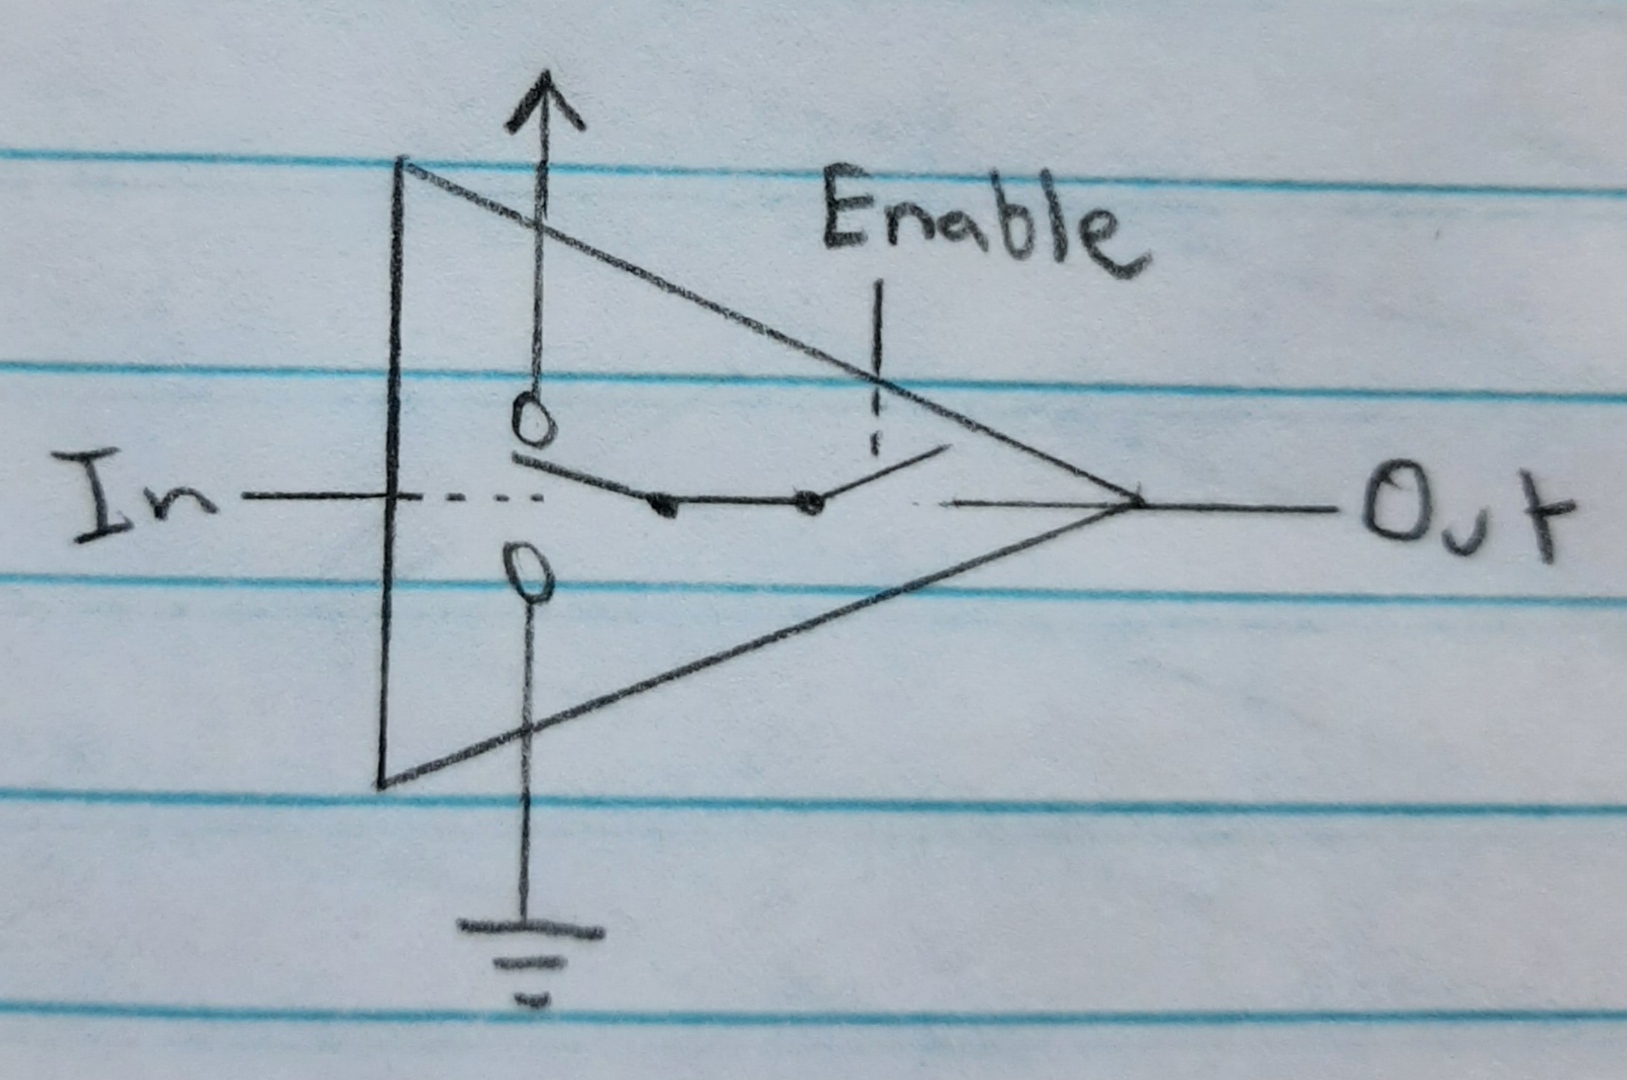 Enable
In
Out